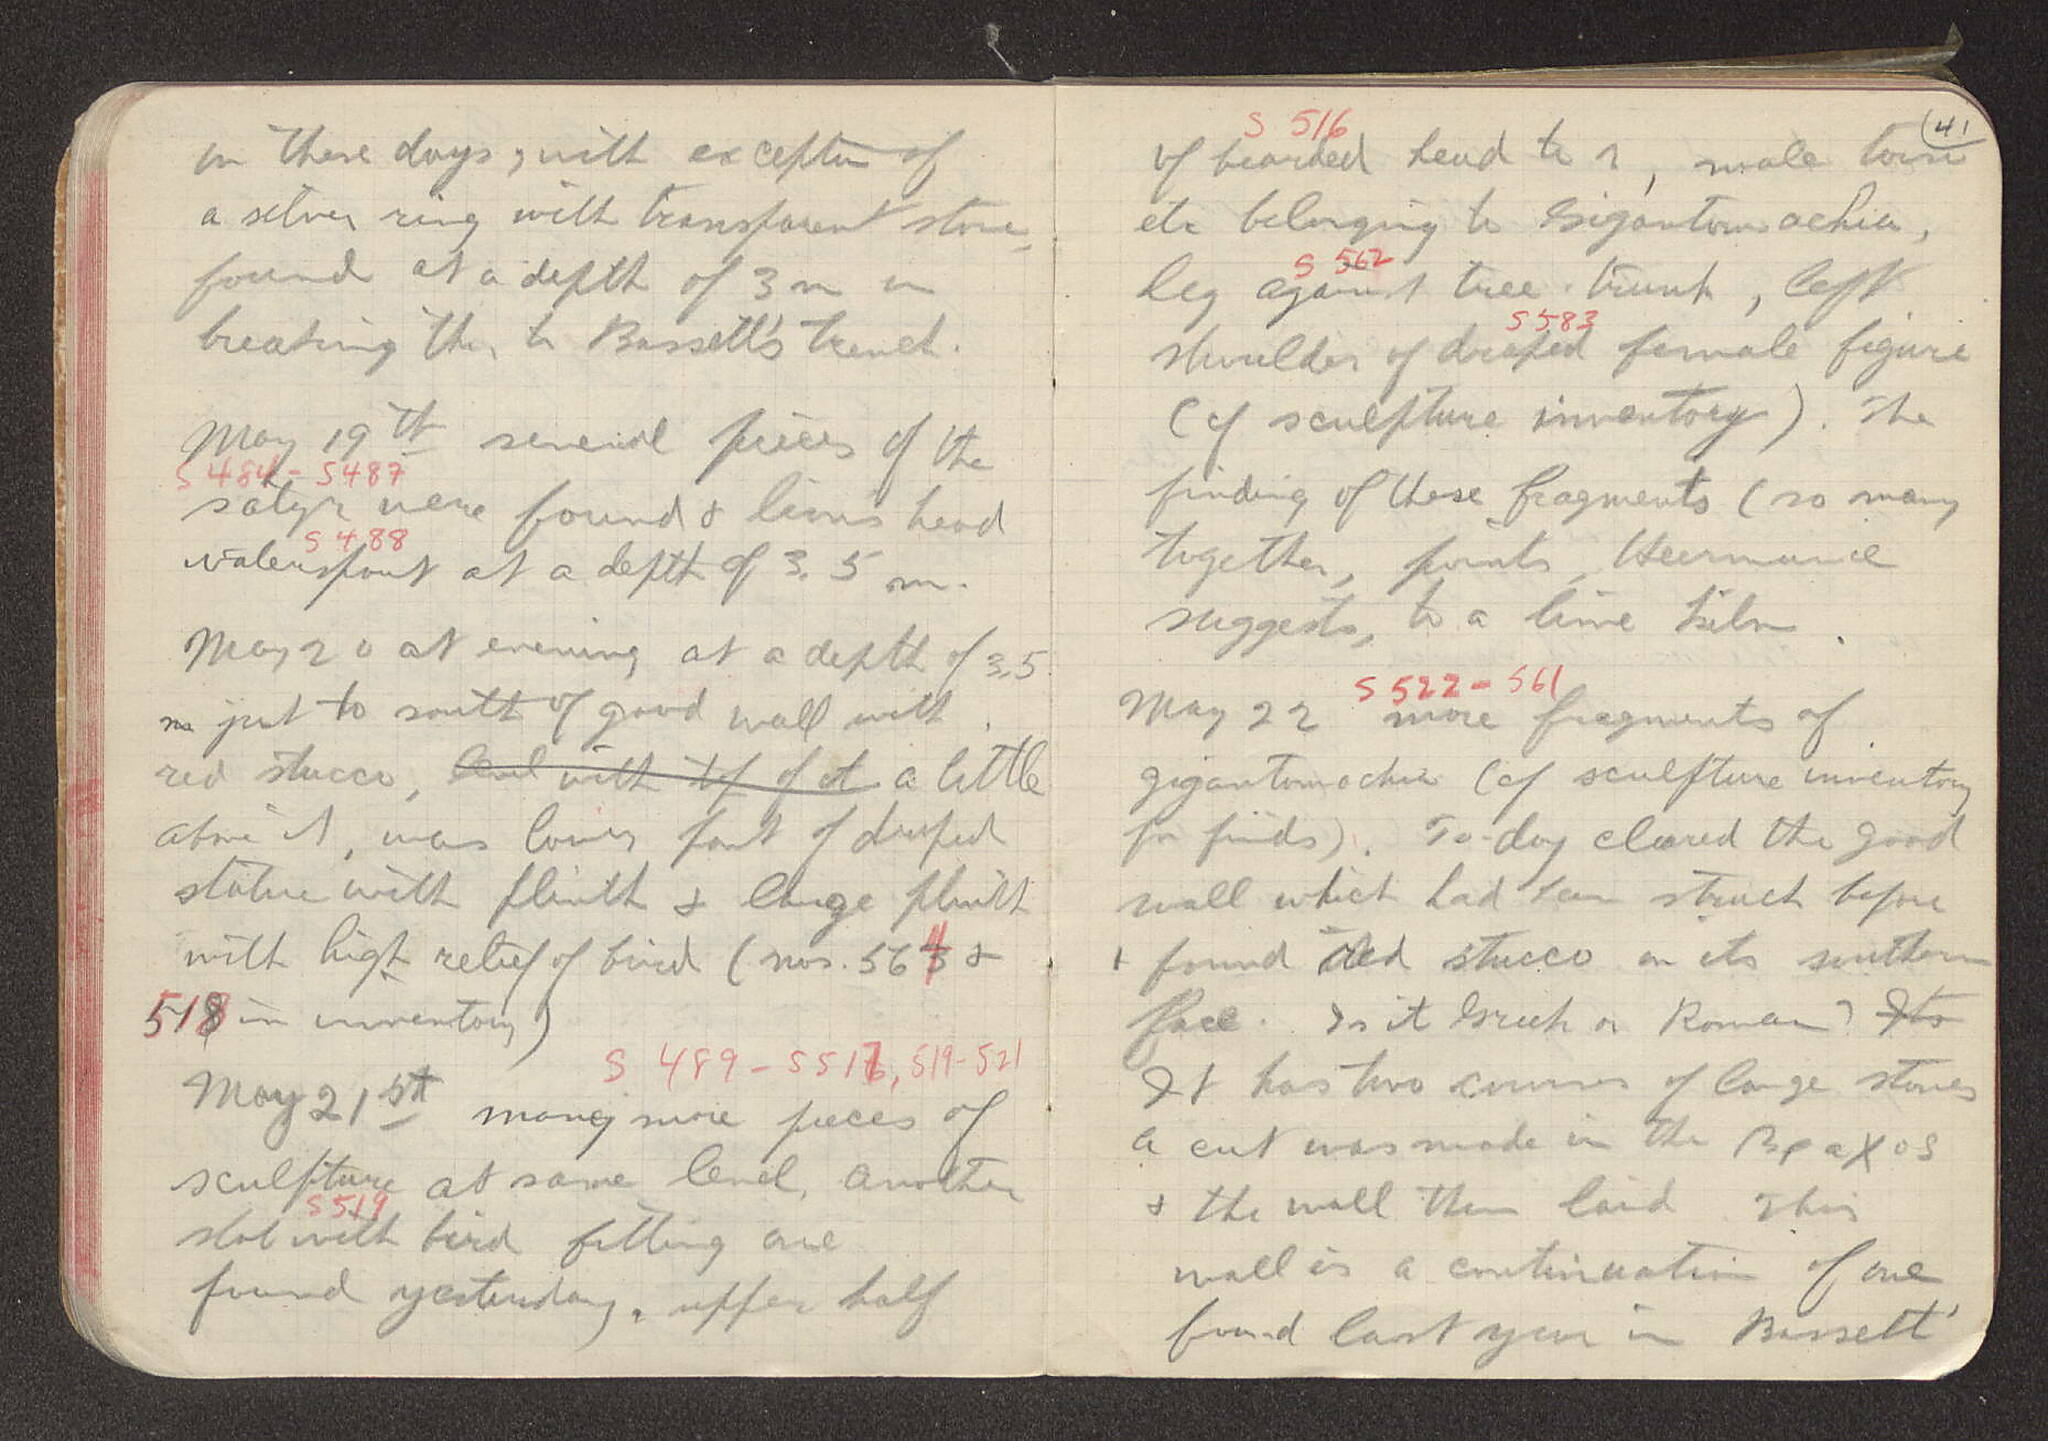 on these days, with exception of
a silver ring with transparent stone,
found at a depth of 3 m in
breaking thr. to Bassett's trench.
May 19th several pieces of the
S 484 - S 487
satyr were found & lions head
S 488
waterspout at a depth of 3.5 m.
May 20 at evening at a depth of 3.5
m just to south of good wall with
red stucco, level with top of it a little
above it, was lower part of draped
statue with plinth & large plinth
with high relief of bird (nos. 564 &
518 in inventory)
S 489 - S 517, 519-521
May 21st many more pieces of
sculpture at same level, another
S 519
slab with bird fitting one
found yesterday, upper half
41
S 516
of bearded head to r, male torso
etc belonging to Gigantomachia,
S 562
leg against tree trunk, left
S 583
shoulder of draped female figure
(cf sculpture inventory). The
finding of these fragments (so many
together, points, Heermance
suggests, to a lime kiln.
S 522 - 561
May 22 more fragments of
gigantomachia (cf sculpture inventory
for finds). To-day cleared the good
wall which had been struck before
+ found red stucco on its southern
face. Is it Greek or Roman? Its
It has two courses of large stones
a cut was made in the Βραχος
& the wall then laid This
wall is a continuation of one
found last year in Bassett'